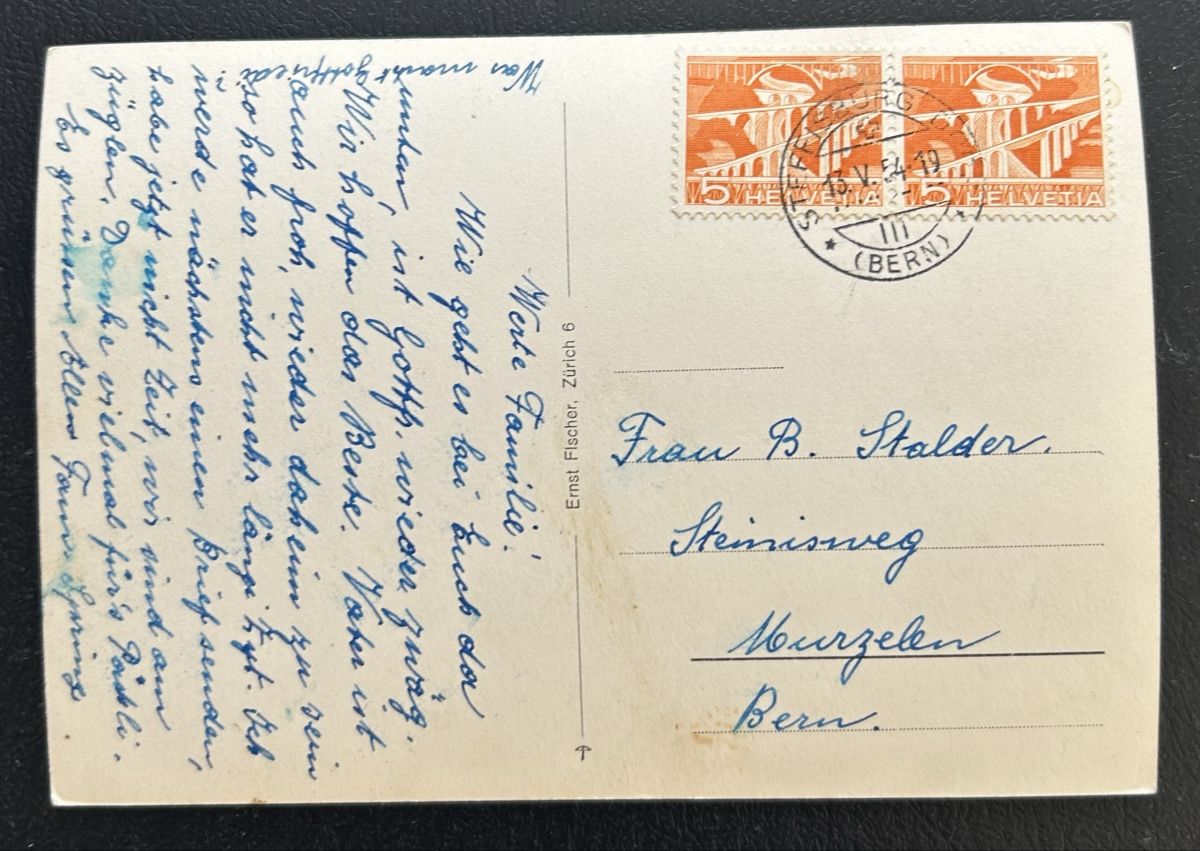 Werte Familie!
Wie geht es bei Euch da
unten, ist Gottfr. wieder zwäg.
Wir hoffen das Beste. Vater ist
auch froh, wieder daheim zu sein
so hat er nicht mehr längi Zyt. Ich
werde nächstens einen Brief senden,
habe jetzt nicht Zeit, wir sind am
züglen. Danke vielmal für's Päckli.
Es grüssen Allen Fam. Spring
Was macht Gottfried?
Ernst Fischer, Zürich 6
5 HELVETIA
5 HELVETIA
STEFFISBURG
13.V.54-19
III
(BERN)
Frau B. Stalder.
Steinisweg
Murzelen
Bern.